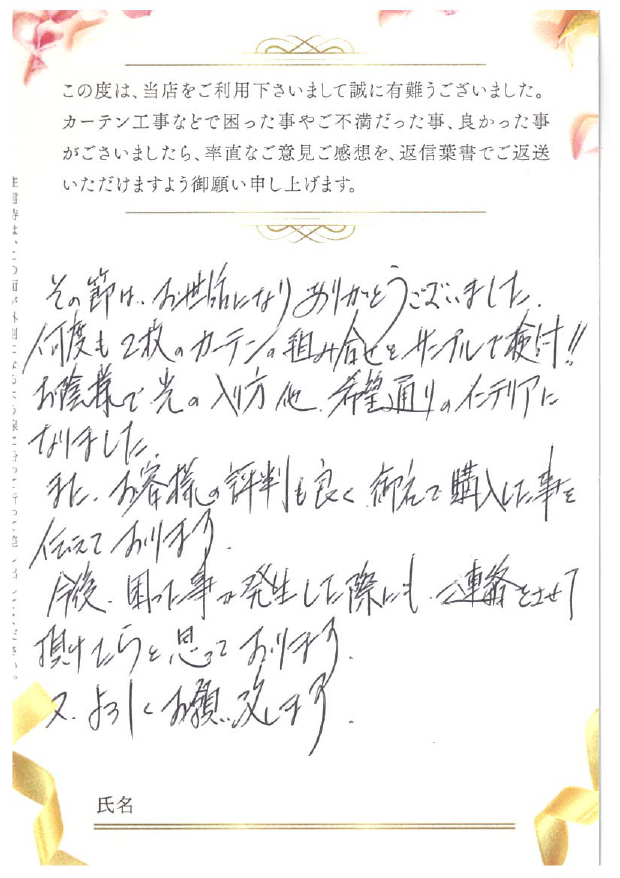 この度は、当店をご利用下さいまして誠に有難うございました。
カーテン工事などで困った事やご不満だった事、良かった事
がございましたら、率直なご意見ご感想を、返信葉書でご返送
いただけますよう御願い申し上げます。
その節は、お世話になりありがとうございました。
何度も2枚のカーテンの組み合せをサンプルで検討!!
お陰様で光の入り方他、希望通りのインテリアに
なりました。
また、お客様の評判も良く、御社で購入した事を
伝えております。
今後、困った事が発生した際にも、ご連絡をさせて
頂けたらと思っております。
又、よろしくお願い致します。
氏名